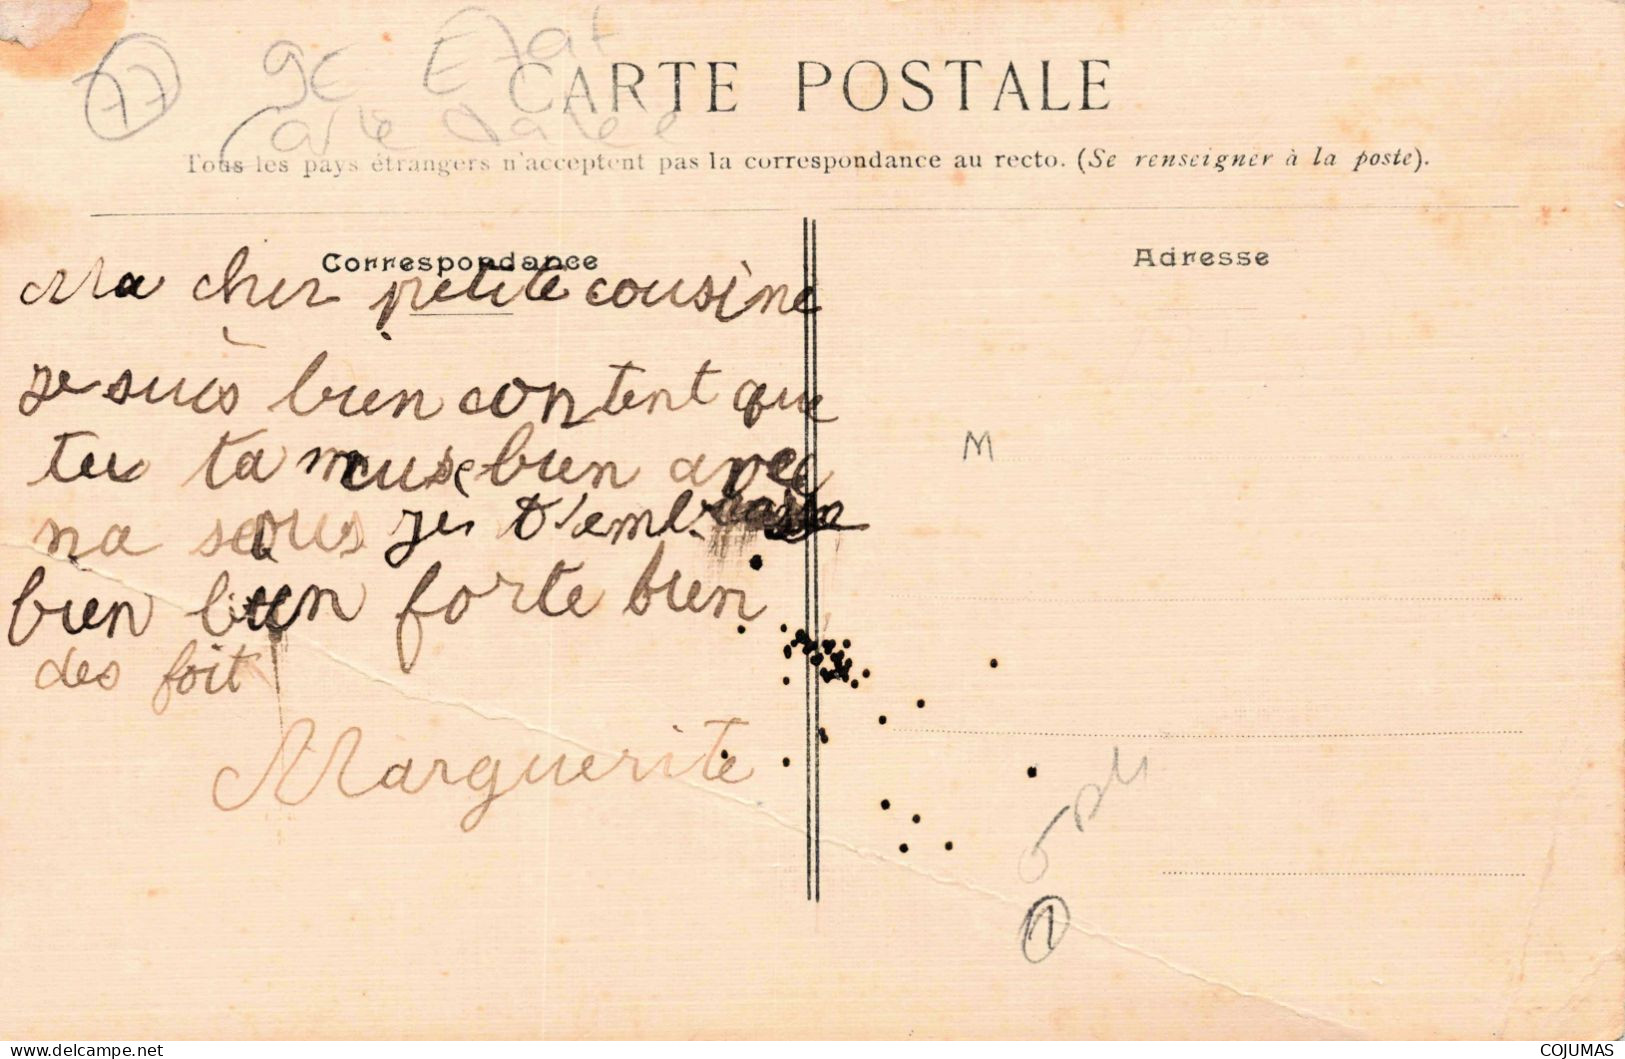 77
9e Etat
Carte
CARTE POSTALE
Tous les pays étrangers n'acceptent pas la correspondance au recto. (Se renseigner à la poste).
Correspondance
Adresse
Ma cher petite cousine
je suis bien content que
tu ta muse bien avec
na sous je t'embrassen
bien bien forte bien
des foit
Marguerite
M
1
www.delcampe.net
COJUMAS